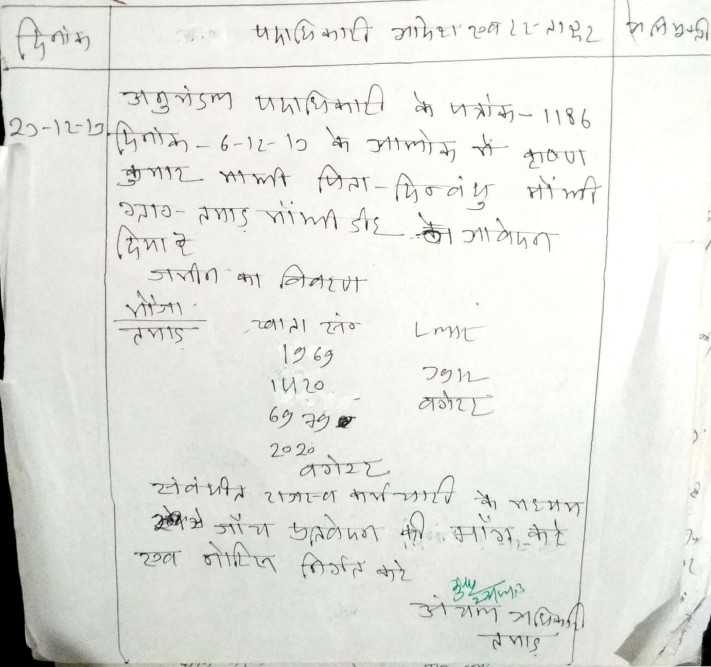 दिनांक पदाधिकारी आदेश एवं हस्ताक्षर
20-12-10 अनुमंडल पदाधिकारी के पत्रांक - 1186
दिनांक - 6-12-10 के आलोक में कृष्ण
कुमार माँझी पिता - दिनबंधु माँझी
ग्राम - तमाड़ माँझीडीह का आवेदन
दिया है
जमीन का विवरण
मौजा
तमाड़ खाता नं०
1969
1420
6979
2020
वगैरह
वगैरह
संबंधीत राजस्व कर्मचारी के माध्यम
से जाँच प्रतिवेदन की माँग करे
एवं नोटिस निर्गत करे
अंचल अधिकारी
तमाड़